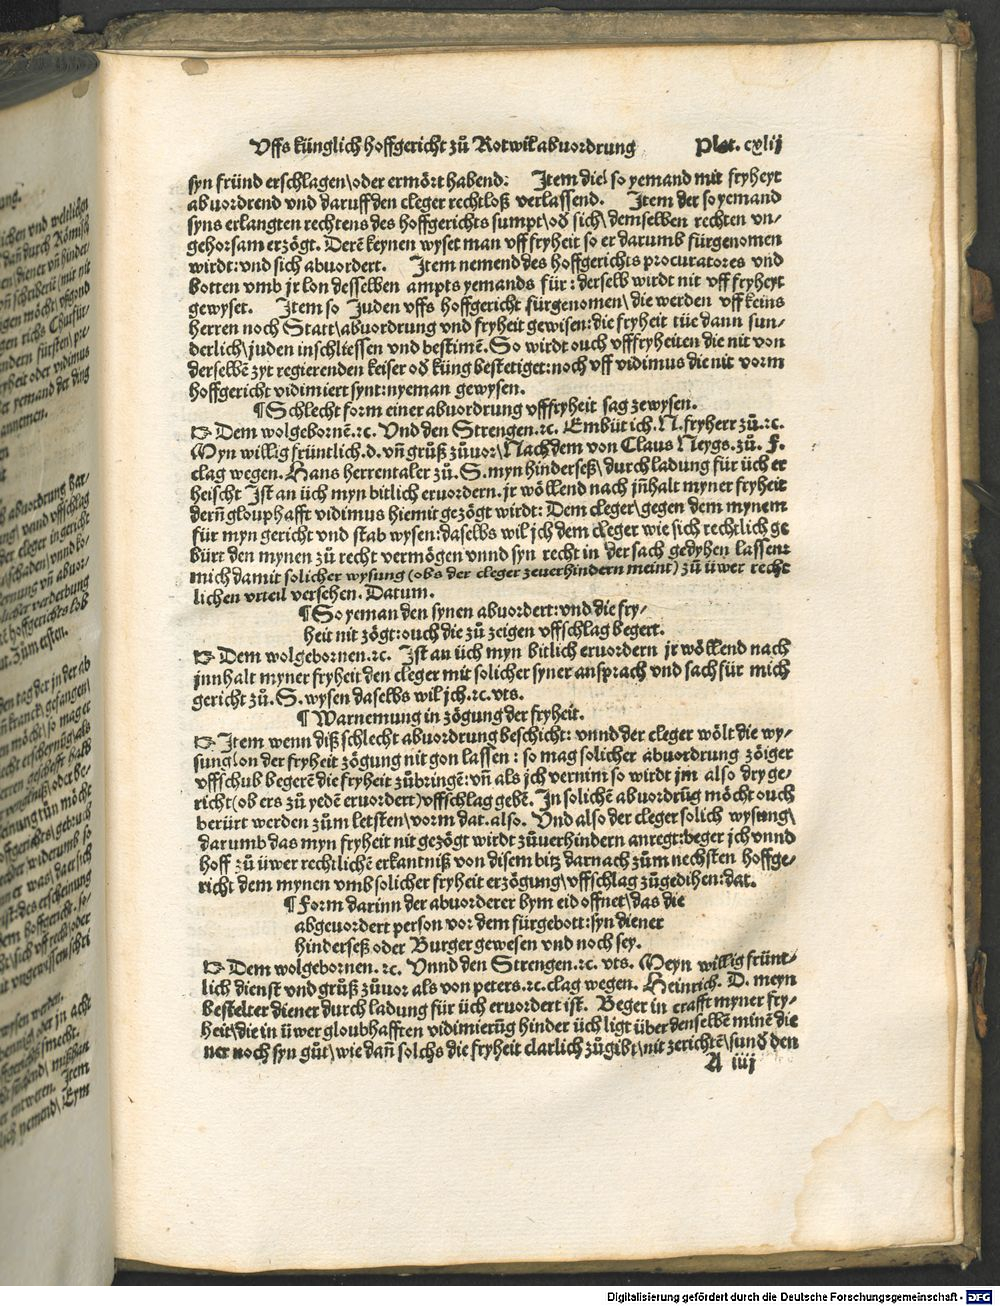 Uffs künglich hoffgericht zů Rotwil abuordrung Plat. cxlij
syn fründ erschlagen\oder ermört habend: Item die\ so yemand mit fryheyt
abuordrend vnd daruff den cleger rechtloß verlassend. Item der so yemand
syns erlangten rechtens des hoffgerichts sumpt\oď sich\ demselben rechten vn-
gehorsam erzögt. Derē keynen wyset man vff fryheit so er darumb fürgenomen
wirdt: vnd sich abuordert. Item nemend des hoffgerichts procuratores vnd
botten vmb jr lon desselben ampts yemands für: derselb wirdt nit vff fryheyt
gewyset. Item so Juden vffs hoffgericht fürgenomen\ die werden vff keins
herren noch Statt\abuordrung vnd fryheit gewisen: die fryheit tüe dann sun-
derlich\ juden inschliessen vnd bestimē. So wirdt ouch vff fryheiten die nit von
derselbē zyt regierenden keiser oď küng bestetiget: noch vff vidimus die nit vorm
hoffgericht vidimiert synt: nyeman gewysen.
¶ Schlecht form einer abuordrung vff fryheit sag zewysen.
☞ Dem wolgebornē. ꝛc. Vnd den Strengen. ꝛc. Embüt ich. N. fryherr zů. ꝛc.
Myn willig früntlich. d. vn̄ grůß zůuor\ Nachdem von Claus Neygs. zů. F.
clag wegen. Hans herrentaler zů. S. myn hinderseß\ durch ladung für üch er
heischt Ist an üch myn bitlich eruordern. jr wöllend nach jn̄halt myner fryheit
dern̄ glouphafft vidimus hiemit gezögt wirdt: Dem cleger\ gegen dem mynem
für myn gericht vnd stab wysen: daselbs wil jch dem cleger wie sich rechtlich ge
bürt den mynen zů recht vermögen vnnd syn recht in der sach gedyhen lassen:
mich damit solicher wysung (obs der cleger zeuerhindern meint) zů üwer recht
lichen vrteil versehen. Datum.
¶ So yeman den synen abuordert: vnd die fry-
heit nit zögt: ouch die zů zeigen vffschlag begert.
☞ Dem wolgebornen. ꝛc. Ist an üch myn bitlich eruordern jr wöllend nach
jnnhalt myner fryheit den cleger mit solicher syner ansprach vnd sach für mich
gericht zů. S. wysen daselbs wil jch. ꝛc. vts.
¶ Warnemung in zögung der fryheit.
☞ Item wenn diß schlecht abuordrung beschicht: vnnd der cleger wölt die wy-
sung\on der fryheit zögung nit gon lassen: so mag solicher abuordrung zöiger
vffschub begerē die fryheit zůbringē: vn̄ als jch vernim so wirdt jm also dry ge-
richt (ob ers zů yedē eruordert) vffschlag gebē. In solichē abuordrūg möcht ouch
berürt werden zům letsten\ vorm dat. also. Vnd also der cleger solich wysung\
darumb das myn fryheit nit gezögt wirdt zůuerhindern anregt: beger jch vnnd
hoff zů üwer rechtlichē erkantniß von disem bitz darnach zům nechsten hoffge-
richt dem mynen vmb solicher fryheit erzögung\ vffschlag zůgedihen: dat.
¶ Form darinn der abuorderer bym eid offnet\ das die
abgeuordert person vor dem fürgebott: syn diener
hinderseß oder Burger gewesen vnd noch sey.
☞ Dem wolgebornen. ꝛc. Vnnd den Strengen. ꝛc. vts. Meyn willig frünt-
lich dienst vnd grůß zůuor als von peters. ꝛc. clag wegen. Heinrich. D. meyn
bestelter diener durch ladung für üch eruordert ist. Beger in crafft myner fry-
heit\die in üwer gloubhafften vidimierūg hinder üch ligt über denselbē minē die
ner noch syn gůt\ wie dan̄ solchs die fryheit clarlich zůgibt\ nit zerichtē\ sunď den
A iiij
Digitalisierung gefördert durch die Deutsche Forschungsgemeinschaft - DFG